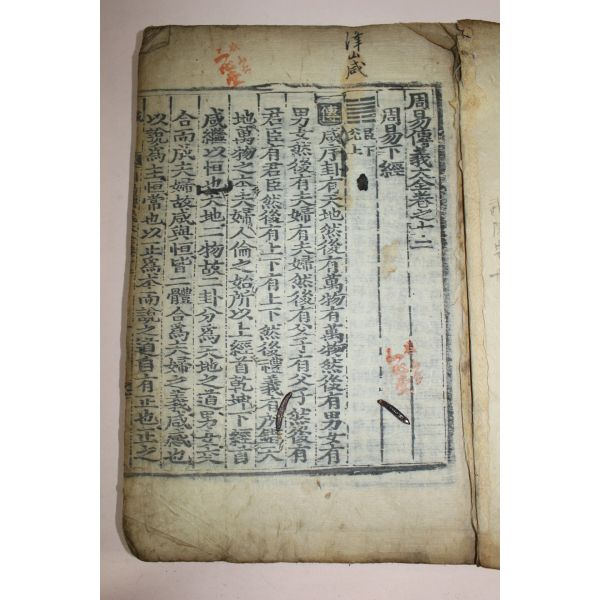 澤山咸
周易傳義大全卷之十二
周易下經
䷞ 艮下 兌上
傳 咸序卦有天地然後有萬物有萬物然後有男女有
男女然後有夫婦有夫婦然後有父子有父子然後有
君臣有君臣然後有上下有上下然後禮義有所錯天
地萬物之本夫婦人倫之始所以上經首乾坤下經首
咸繼以恒也天地二物故二卦分爲天地之道男女交
合而成夫婦故咸與恒皆二體合爲夫婦之義咸感也
以說爲主恒常也以正爲本而說之道自有正也正之